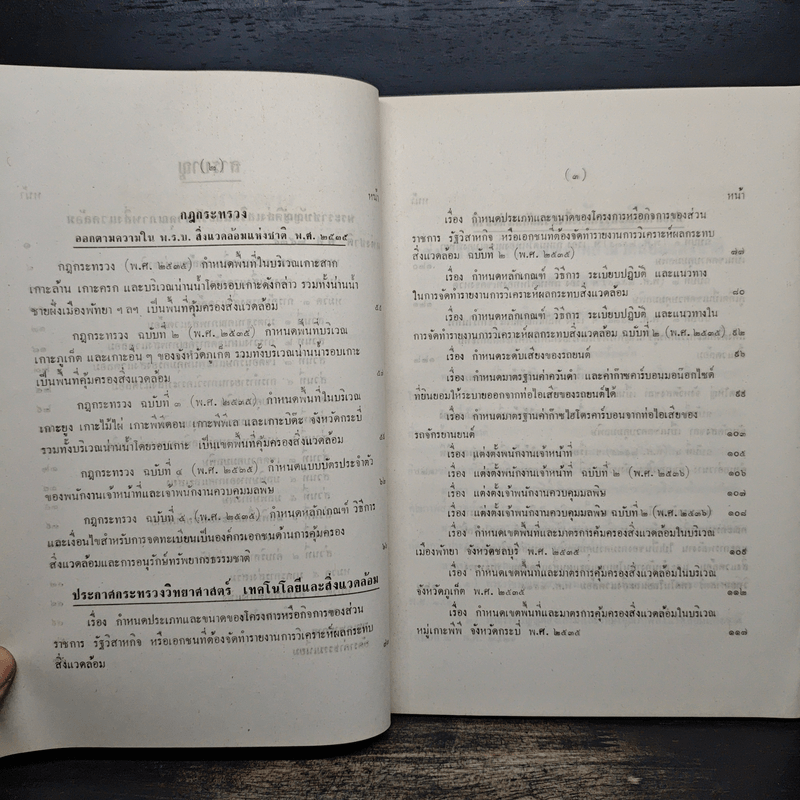 (๒)
หน้า
กฎกระทรวง
ออกตามความใน พ.ร.บ. สิ่งแวดล้อมแห่งชาติ พ.ศ. ๒๕๓๕
กฎกระทรวง (พ.ศ. ๒๕๓๕) กำหนดพื้นที่ในบริเวณเกาะสาก
เกาะล้าน เกาะครก และบริเวณน่านน้ำโดยรอบเกาะดังกล่าว รวมทั้งน่านน้ำ
ชายฝั่งเมืองพัทยา ฯลฯ เป็นพื้นที่คุ้มครองสิ่งแวดล้อม
กฎกระทรวง ฉบับที่ ๒ (พ.ศ. ๒๕๓๕) กำหนดพื้นที่บริเวณ
เกาะภูเก็ต และเกาะอื่น ๆ ของจังหวัดภูเก็ต รวมทั้งบริเวณน่านน้ำรอบเกาะ
เป็นพื้นที่คุ้มครองสิ่งแวดล้อม
กฎกระทรวง ฉบับที่ ๓ (พ.ศ. ๒๕๓๕) กำหนดพื้นที่ในบริเวณ
เกาะยูง เกาะไม้ไผ่ เกาะพีพีดอน เกาะพีพีเล และเกาะบิด๊ะ จังหวัดกระบี่
รวมทั้งบริเวณน่านน้ำโดยรอบเกาะ เป็นเขตพื้นที่คุ้มครองสิ่งแวดล้อม
กฎกระทรวง ฉบับที่ ๔ (พ.ศ. ๒๕๓๕) กำหนดแบบบัตรประจำตัว
ของพนักงานเจ้าหน้าที่และเจ้าพนักงานควบคุมมลพิษ
กฎกระทรวง ฉบับที่ ๕ (พ.ศ. ๒๕๓๕) กำหนดหลักเกณฑ์ วิธีการ
และเงื่อนไขสำหรับการจดทะเบียนเป็นองค์กรเอกชนด้านการคุ้มครอง
สิ่งแวดล้อมและการอนุรักษ์ทรัพยากรธรรมชาติ
ประกาศกระทรวงวิทยาศาสตร์ เทคโนโลยีและสิ่งแวดล้อม
เรื่อง กำหนดประเภทและขนาดของโครงการหรือกิจการของส่วน
ราชการ รัฐวิสาหกิจ หรือเอกชนที่ต้องจัดทำรายงานการวิเคราะห์ผลกระทบ
สิ่งแวดล้อม
(๓)
หน้า
เรื่อง กำหนดประเภทและขนาดของโครงการหรือกิจการของส่วน
ราชการ รัฐวิสาหกิจ หรือเอกชนที่ต้องจัดทำรายงานการวิเคราะห์ผลกระทบ
สิ่งแวดล้อม ฉบับที่ ๒ (พ.ศ. ๒๕๓๕) ๗๗
เรื่อง กำหนดหลักเกณฑ์ วิธีการ ระเบียบปฏิบัติ และแนวทาง
ในการจัดทำรายงานการวิเคราะห์ผลกระทบสิ่งแวดล้อม ๘๐
เรื่อง กำหนดหลักเกณฑ์ วิธีการ ระเบียบปฏิบัติ และแนวทางใน
การจัดทำรายงานการวิเคราะห์ผลกระทบสิ่งแวดล้อม ฉบับที่ ๒ (พ.ศ. ๒๕๓๕) ๙๒
เรื่อง กำหนดระดับเสียงของรถยนต์ ๙๖
เรื่อง กำหนดมาตรฐานค่าควันดำ และค่าก๊าซคาร์บอนมอน๊อกไซด์
ที่ยินยอมให้ระบายออกจากท่อไอเสียของรถยนต์ได้ ๙๙
เรื่อง กำหนดมาตรฐานค่าก๊าซไฮโดรคาร์บอนจากท่อไอเสียของ
รถจักรยานยนต์ ๑๐๓
เรื่อง แต่งตั้งพนักงานเจ้าหน้าที่ ๑๐๕
เรื่อง แต่งตั้งพนักงานเจ้าหน้าที่ ฉบับที่ ๒ (พ.ศ. ๒๕๓๖) ๑๐๖
เรื่อง แต่งตั้งเจ้าพนักงานควบคุมมลพิษ ๑๐๗
เรื่อง แต่งตั้งเจ้าพนักงานควบคุมมลพิษ ฉบับที่ ๒ (พ.ศ. ๒๕๓๖) ๑๐๘
เรื่อง กำหนดเขตพื้นที่และมาตรการคุ้มครองสิ่งแวดล้อมในบริเวณ
เมืองพัทยา จังหวัดชลบุรี พ.ศ. ๒๕๓๕ ๑๐๙
เรื่อง กำหนดเขตพื้นที่และมาตรการคุ้มครองสิ่งแวดล้อมในบริเวณ
จังหวัดภูเก็ต พ.ศ. ๒๕๓๕ ๑๑๒
เรื่อง กำหนดเขตพื้นที่และมาตรการคุ้มครองสิ่งแวดล้อมในบริเวณ
หมู่เกาะพีพี จังหวัดกระบี่ พ.ศ. ๒๕๓๕ ๑๑๗